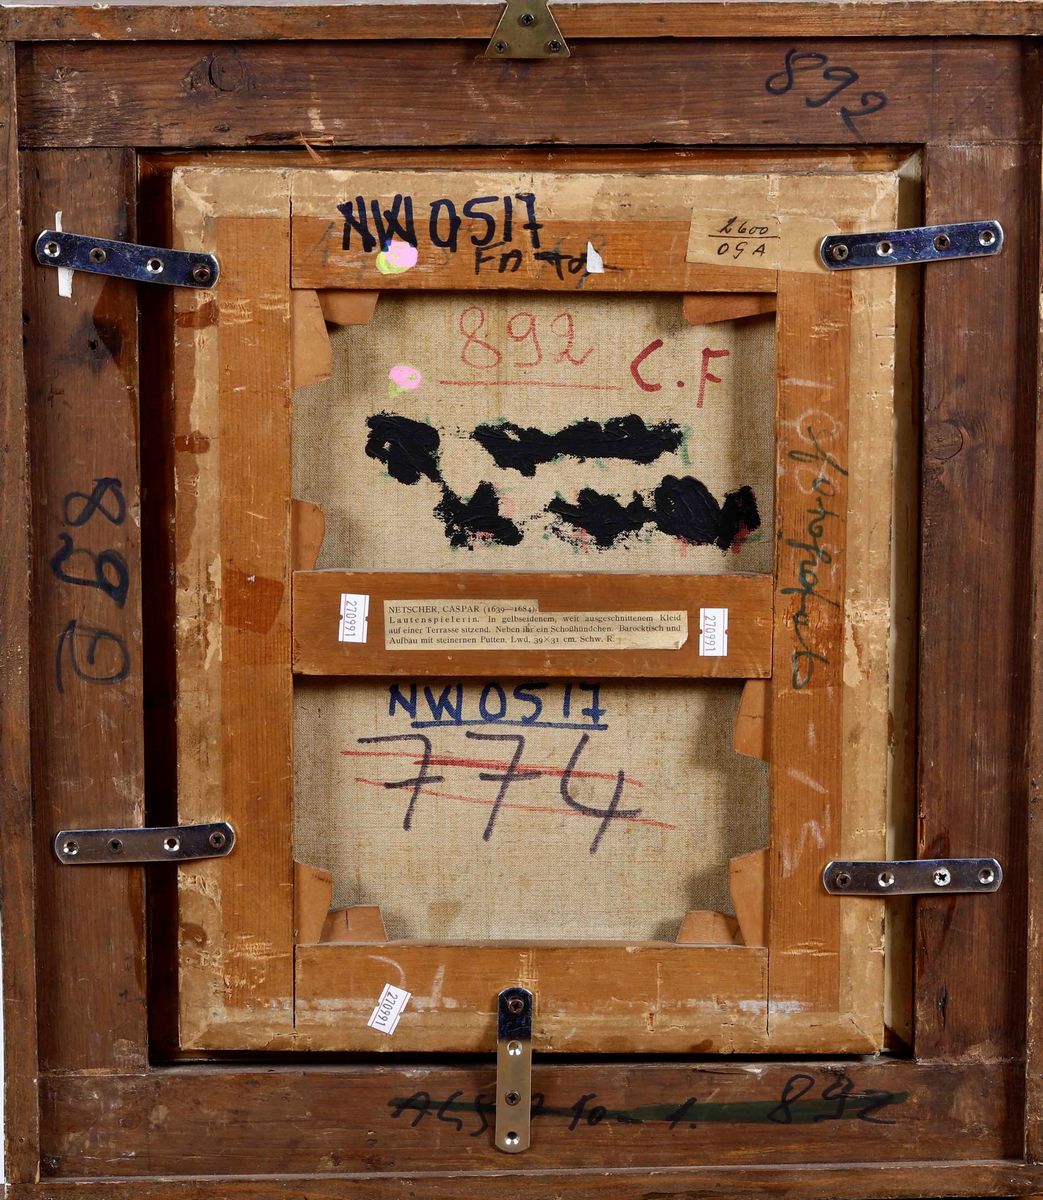 892
NW0517
2600
OGA
892
C.F
892
270991
NETSCHER, CASPAR (1639—1684).
Lautenspielerin. In gelbseidenem, weit ausgeschnittenem Kleid
auf einer Terrasse sitzend. Neben ihr ein Schoßhündchen. Barocktisch und
Aufbau mit steinernen Putten. Lwd. 39×31 cm. Schw. R.
270991
NW0517
774
270991
892